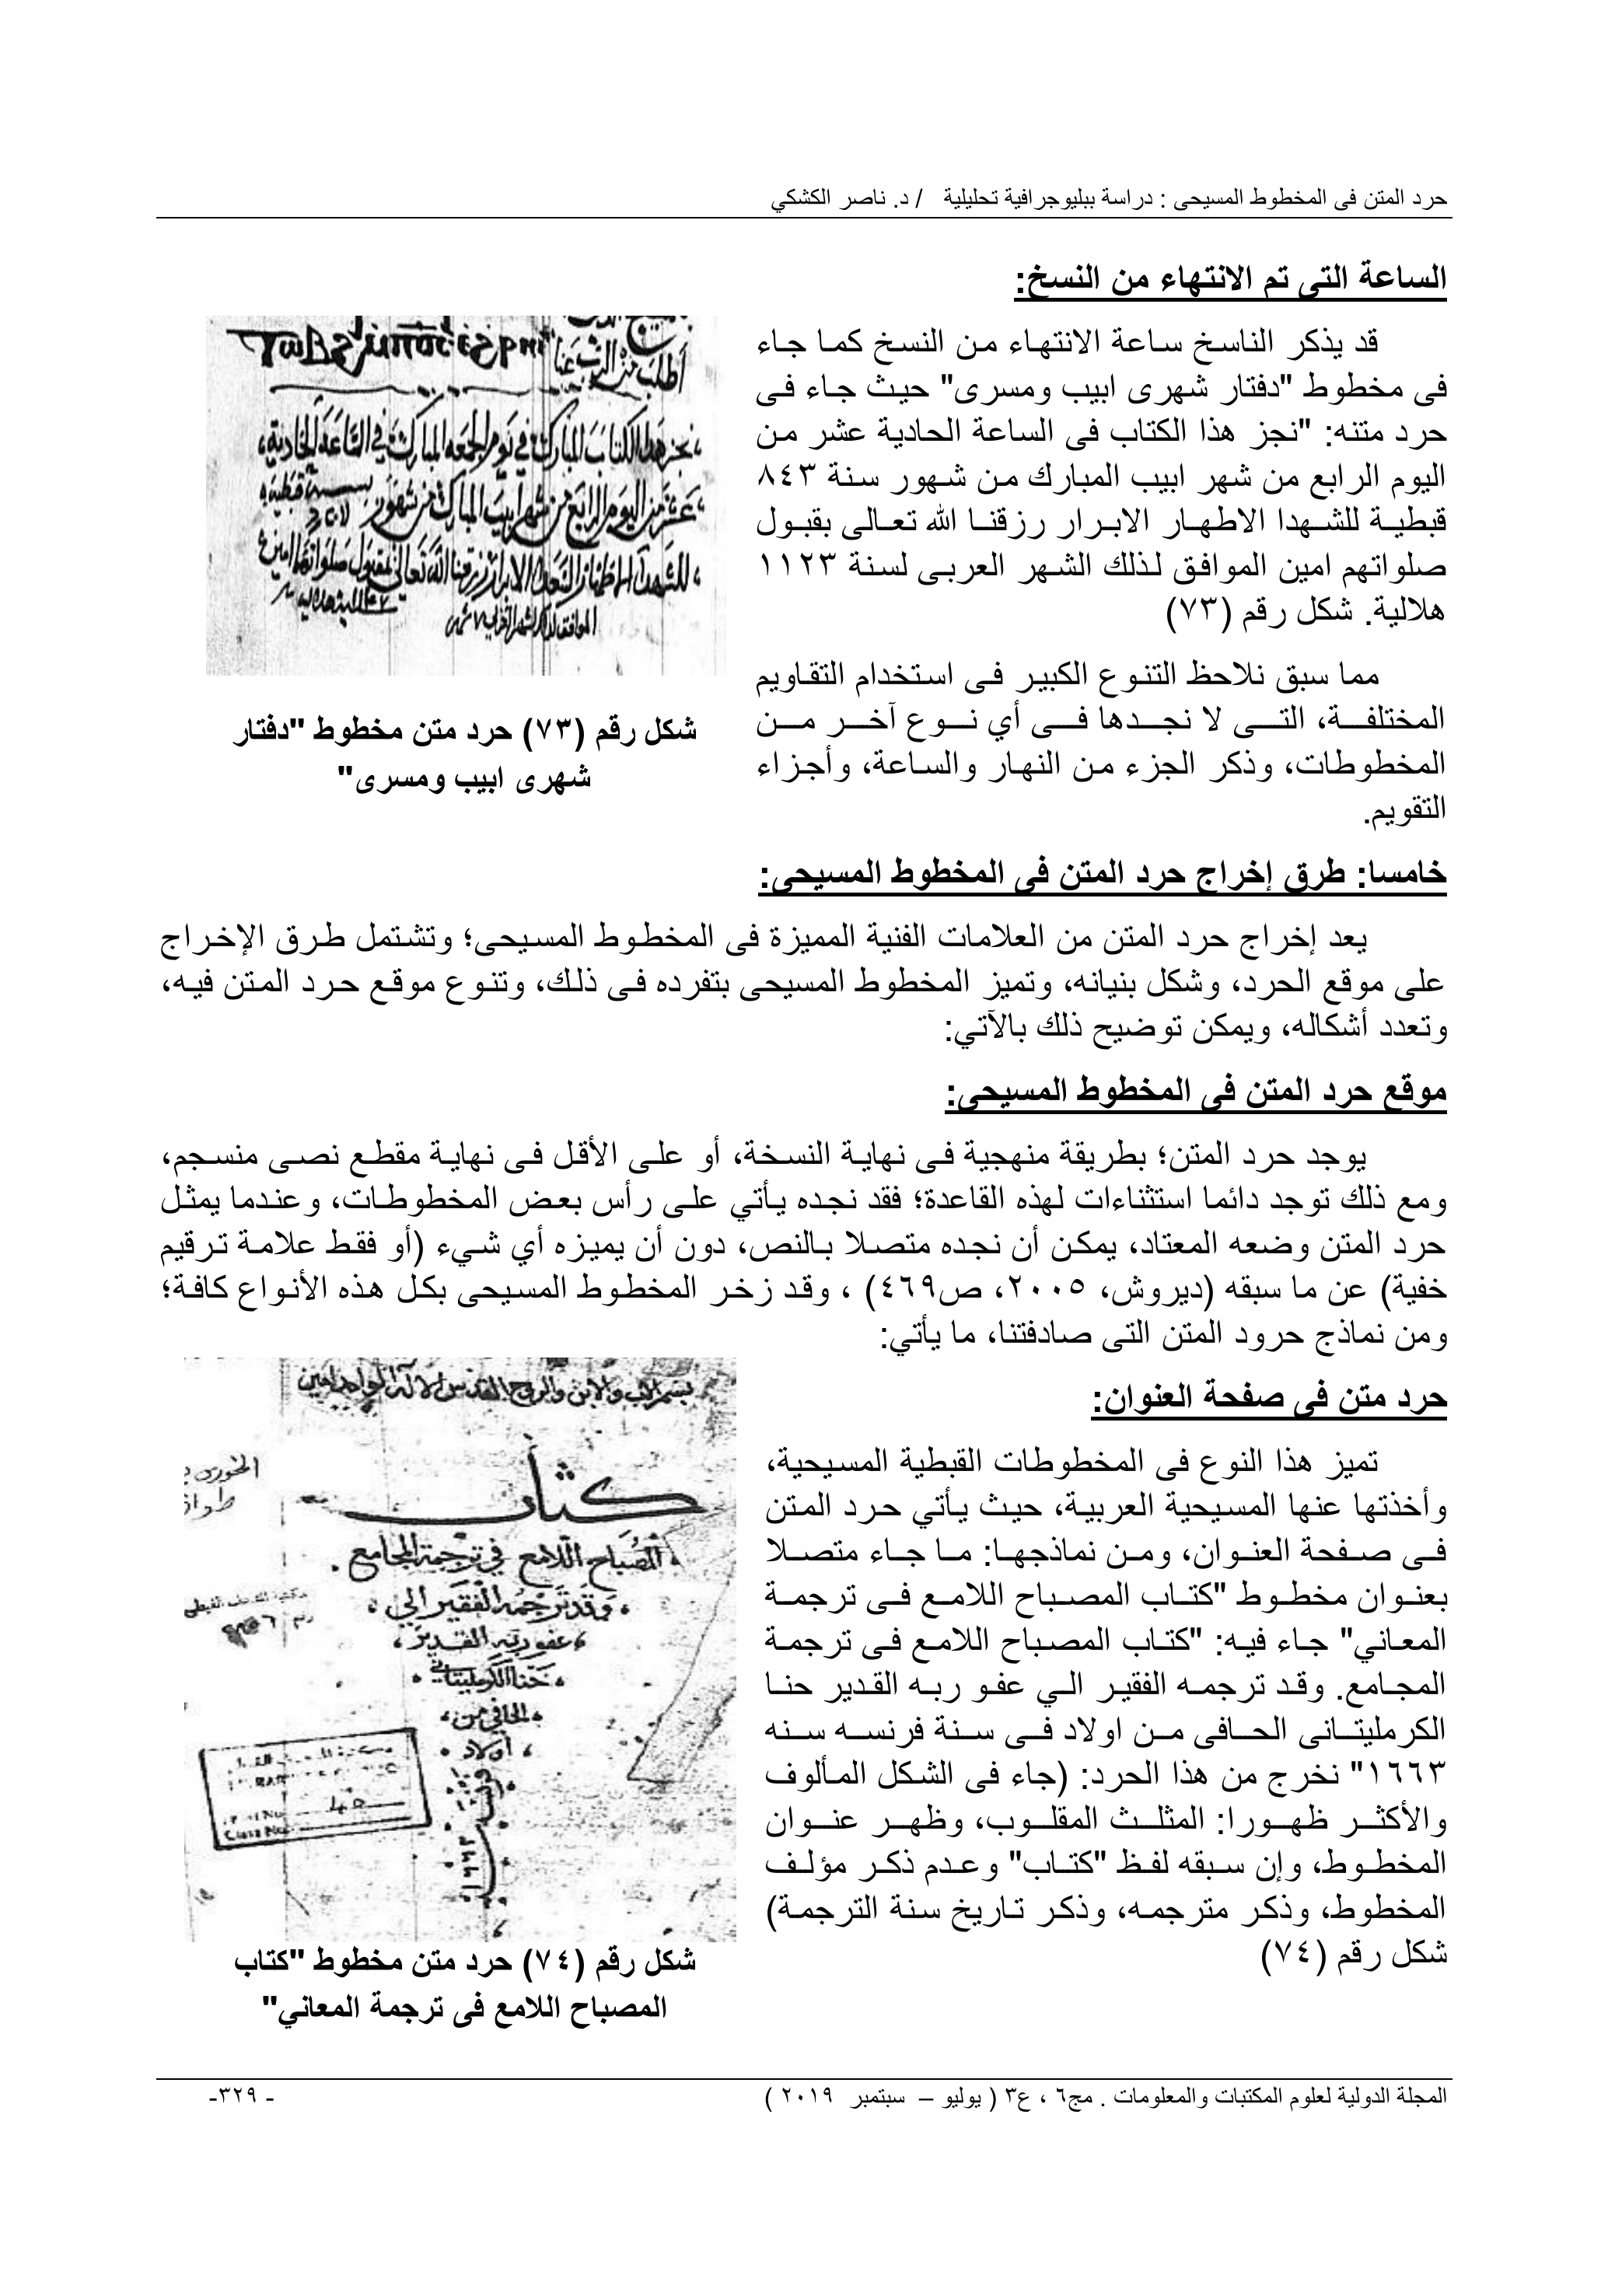 حرد المتن فى المخطوط المسيحى : دراسة ببليوجرافية تحليلية / د. ناصر الكشكي
الساعة التى تم الانتهاء من النسخ:
قد يذكر الناسخ ساعة الانتهاء من النسخ كما جاء
فى مخطوط "دفتار شهرى ابيب ومسرى" حيث جاء فى
حرد متنه: "نجز هذا الكتاب فى الساعة الحادية عشر من
اليوم الرابع من شهر ابيب المبارك من شهور سنة ٨٤٣
قبطية للشهدا الاطهار الابرار رزقنا الله تعالى بقبول
صلواتهم امين الموافق لذلك الشهر العربى لسنة ١١٢٣
هلالية. شكل رقم (٧٣)
نجز هذا الكتاب المبارك في يوم الجمعه المبارك في الساعة الحادية
عشر من اليوم الرابع من شهر ابيب المبارك من شهور سنة قبطية
شكل رقم (٧٣) حرد متن مخطوط "دفتار
شهرى ابيب ومسرى"
مما سبق نلاحظ التنوع الكبير فى استخدام التقاويم
المختلفة، التى لا نجدها فى أي نوع آخر من
المخطوطات، وذكر الجزء من النهار والساعة، وأجزاء
التقويم.
خامسا: طرق إخراج حرد المتن فى المخطوط المسيحى:
يعد إخراج حرد المتن من العلامات الفنية المميزة فى المخطوط المسيحى؛ وتشتمل طرق الإخراج
على موقع الحرد، وشكل بنيانه، وتميز المخطوط المسيحى بتفرده فى ذلك، وتنوع موقع حرد المتن فيه،
وتعدد أشكاله، ويمكن توضيح ذلك بالآتي:
موقع حرد المتن فى المخطوط المسيحى:
يوجد حرد المتن؛ بطريقة منهجية فى نهاية النسخة، أو على الأقل فى نهاية مقطع نصى منسجم،
ومع ذلك توجد دائما استثناءات لهذه القاعدة؛ فقد نجده يأتي على رأس بعض المخطوطات، وعندما يمثل
حرد المتن وضعه المعتاد، يمكن أن نجده متصلا بالنص، دون أن يميزه أي شيء (أو فقط علامة ترقيم
خفية) عن ما سبقه (ديروش، ٢٠٠٥، ص٤٦٩) ، وقد زخر المخطوط المسيحى بكل هذه الأنواع كافة؛
ومن نماذج حرود المتن التى صادفتنا، ما يأتي:
حرد متن فى صفحة العنوان:
تميز هذا النوع فى المخطوطات القبطية المسيحية،
وأخذتها عنها المسيحية العربية، حيث يأتي حرد المتن
فى صفحة العنوان، ومن نماذجها: ما جاء متصلا
بعنوان مخطوط "كتاب المصباح اللامع فى ترجمة
المعاني" جاء فيه: "كتاب المصباح اللامع فى ترجمة
المجامع. وقد ترجمه الفقير الي عفو ربه القدير حنا
الكرمليتانى الحافى من اولاد فى سنة فرنسه سنه
١٦٦٣" نخرج من هذا الحرد: (جاء فى الشكل المألوف
والأكثر ظهورا: المثلث المقلوب، وظهر عنوان
المخطوط، وإن سبقه لفظ "كتاب" وعدم ذكر مؤلف
المخطوط، وذكر مترجمه، وذكر تاريخ سنة الترجمة)
شكل رقم (٧٤)
بسم الاب والابن والروح القدس الاله الواحد امين
كتاب
المصباح اللامع في ترجمة المجامع
وقد ترجمه الفقير الي
عفو ربه القدير
حنا الكرمليتاني
الحافي من
أولاد
شكل رقم (٧٤) حرد متن مخطوط "كتاب
المصباح اللامع فى ترجمة المعاني"
المجلة الدولية لعلوم المكتبات والمعلومات . مج٦ ، ع٣ ( يوليو – سبتمبر ٢٠١٩ )
- ٣٢٩-